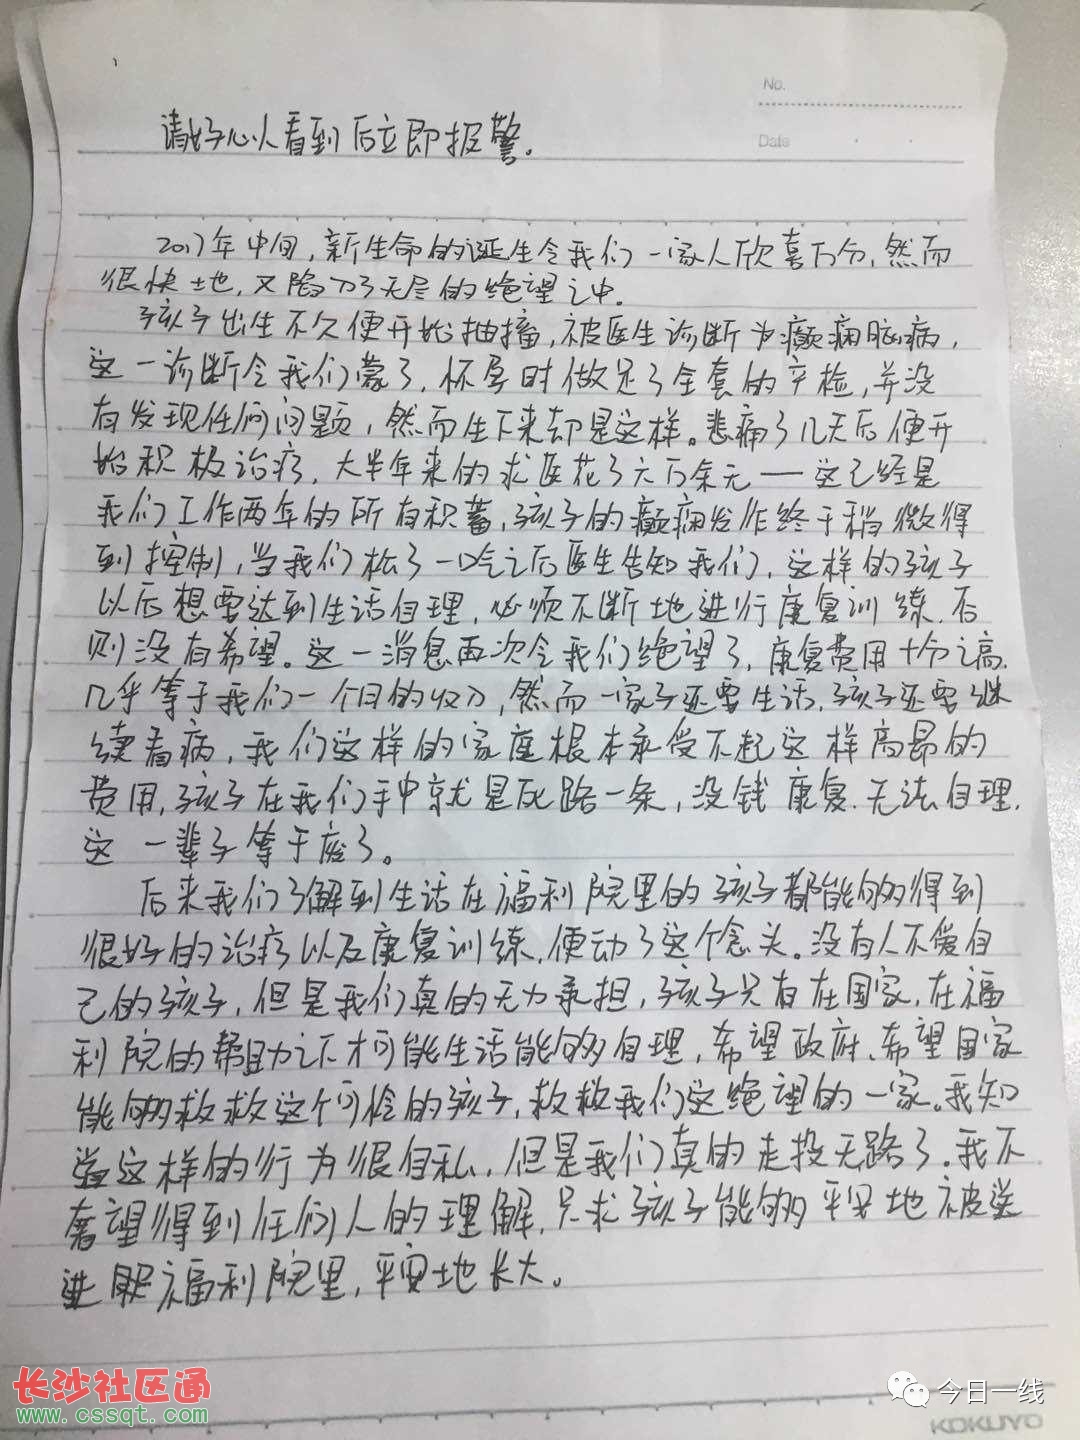 No.
Date
请好心人看到后立即报警。
2017年中旬，新生命的诞生令我们一家人欣喜万分，然而
很快地，又陷入了无尽的绝望之中。
孩子出生不久便开始抽搐，被医生诊断为癫痫脑病，
这一诊断令我们蒙了，怀孕时做足了全套的产检，并没
有发现任何问题，然而生下来却是这样。悲痛了几天后便开
始积极治疗，大半年来的求医花了六万余元——这已经是
我们工作两年的所有积蓄，孩子的癫痫发作终于稍微得
到控制，当我们松了一口气之后医生告知我们，这样的孩子
以后想要达到生活自理，必须不断地进行康复训练，否
则没有希望。这一消息再次令我们绝望了，康复费用十分之高，
几乎等于我们一个月的收入，然而一家子还要生活，孩子还要继
续看病，我们这样的家庭根本承受不起这样高昂的
费用，孩子在我们手中就是死路一条，没钱康复，无法自理，
这一辈子等于废了。
后来我们了解到生活在福利院里的孩子都能够得到
很好的治疗以及康复训练，便动了这个念头。没有人不爱自
己的孩子，但是我们真的无力承担，孩子只有在国家，在福
利院的帮助之下才可能生活能够自理，希望政府、希望国家
能够救救这个可怜的孩子，救救我们这绝望的一家。我知
道这样的行为很自私，但是我们真的走投无路了。我不
奢望得到任何人的理解，只求孩子能够平安地被送
进福利院里，平安地长大。
长沙社区通
www.cssqt.com
今日一线
KOKUYO